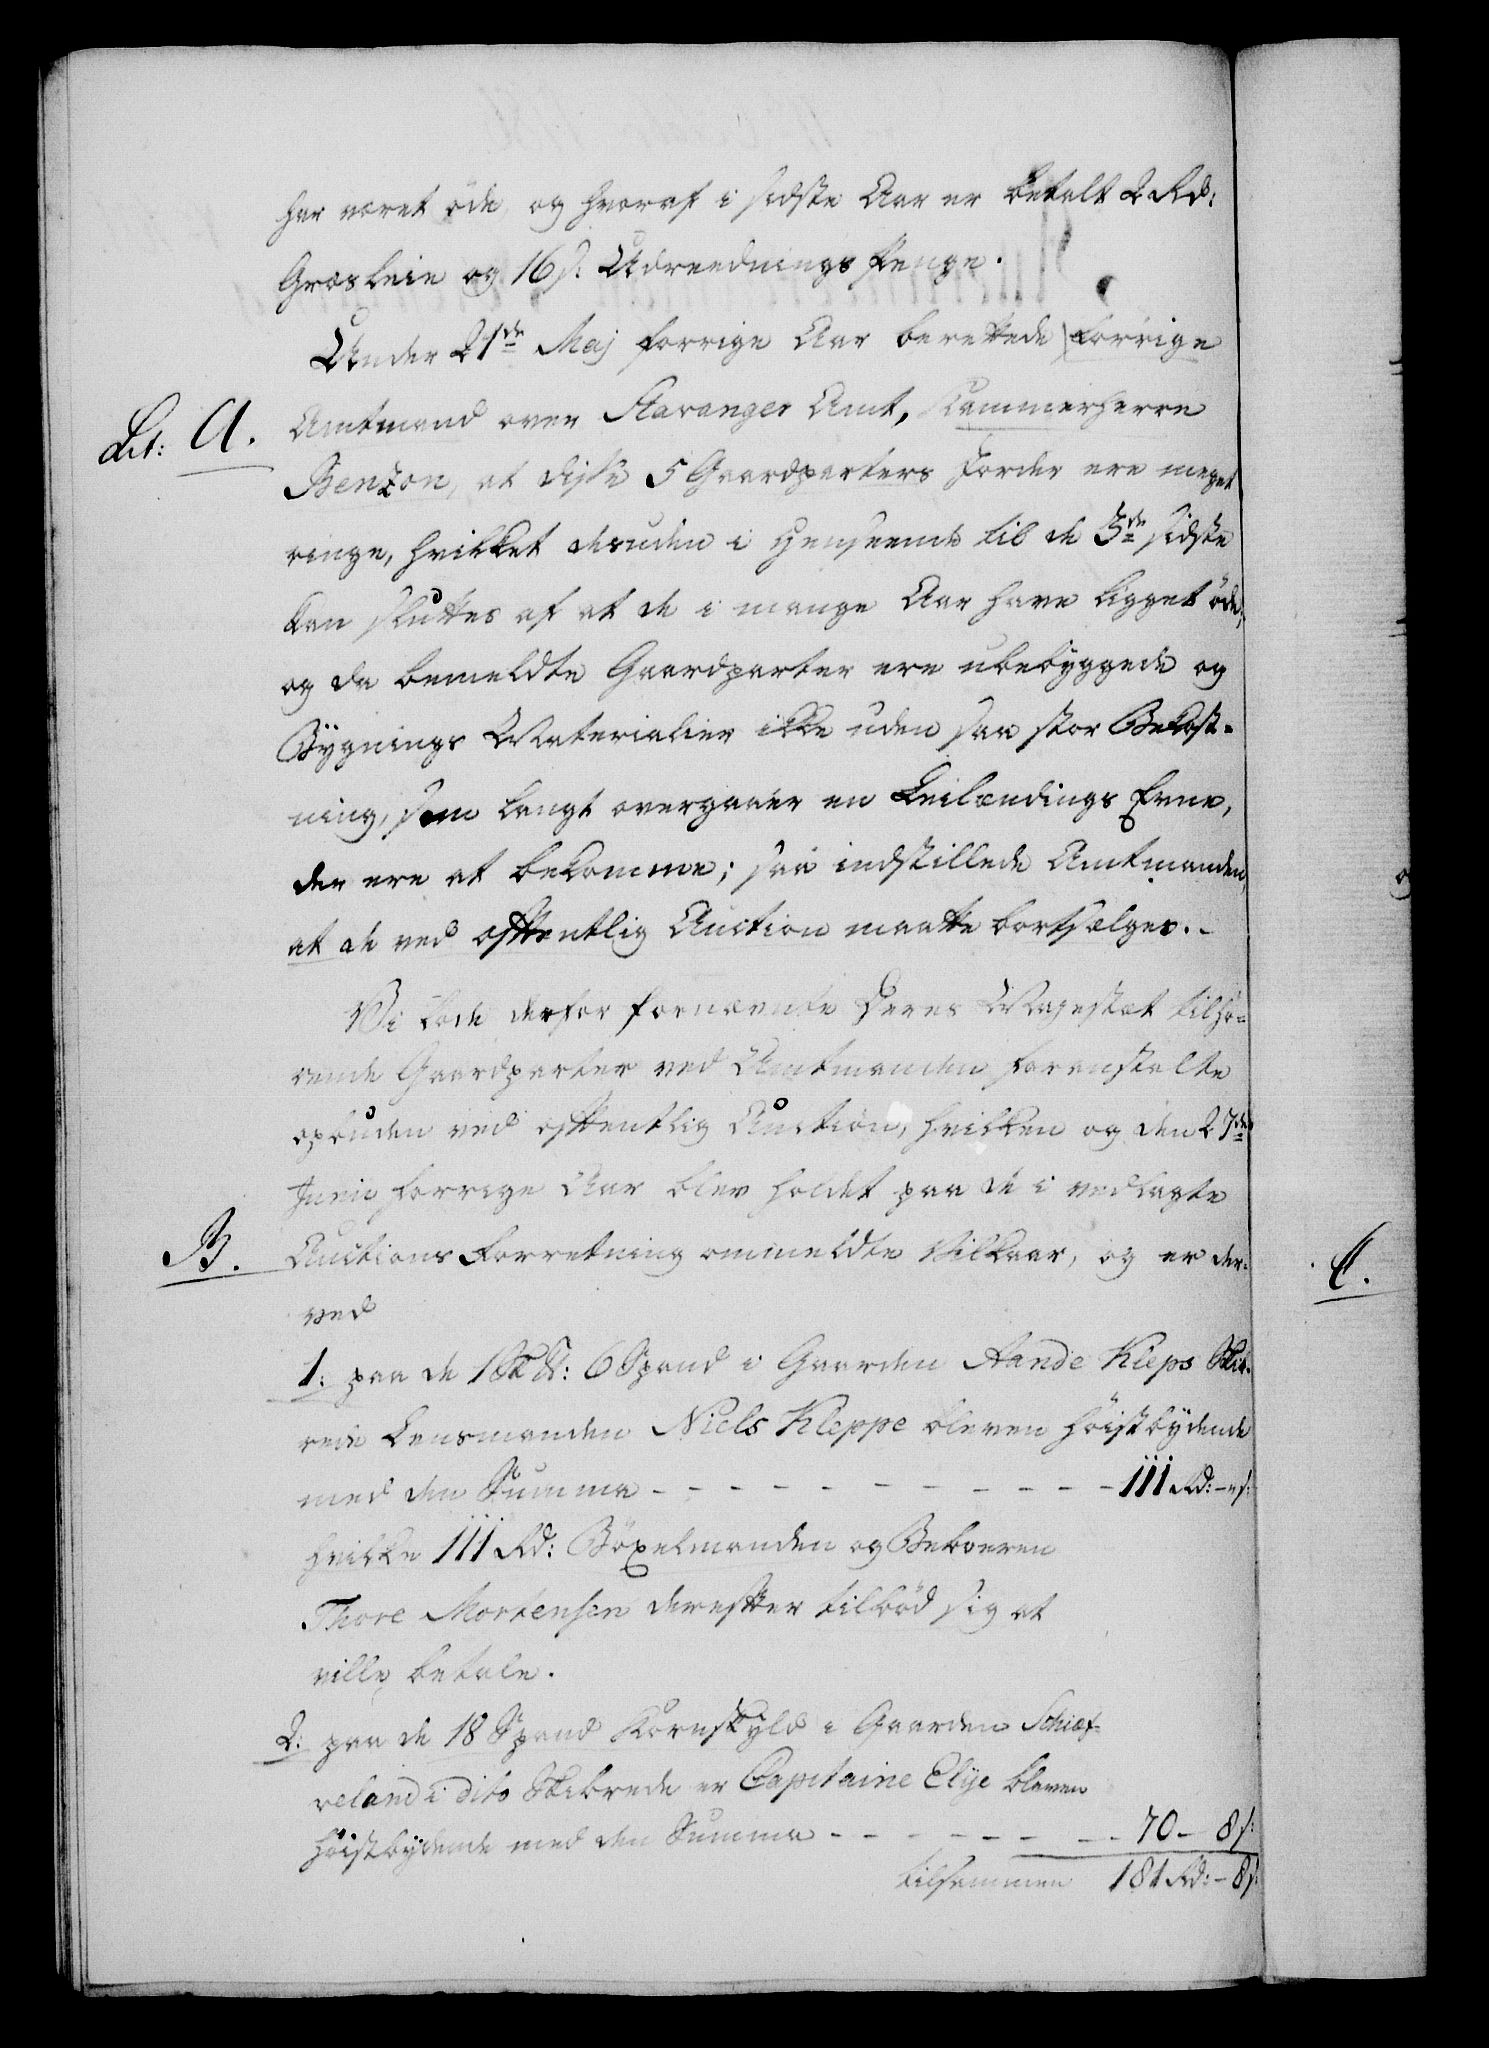 har været öde, og hvoraf i sidste Aar er betalt 2 Rd:
Græsleie og 16 s: Udreednings Penge.
Under 21de Maj forrige Aar berettede forrige
Lit: A. Amtmand over Stavanger Amt, Kammerherre
Benzon, at disse 5 Gaardparters Jorder ere meget
ringe, hvilket desuden i Henseende til de 3de sidste
kan sluttes af at de i mange Aar have ligget öde,
og da bemeldte Gaardparter ere ubebyggede og
Bygnings Materialier ikke uden saa stor Bekost-
ning, som langt overgaaer en Leilændings Evne,
der ere at bekomme; saa indstillede Amtmanden,
at de ved offentlig Auction maatte bortsælges. -
Vi lode derfor fornævnte Deres Majestæt tilhö-
rende Gaardparter ved Amtmanden foranstalte
opbuden ved offentlig Auction, hvilken og den 27de
Junii forrige Aar blev holdet paa de i vedlagte
B. Auctions Forretning ommeldte Vilkaar, og er der-
ved
1: paa de 1 6 Spand i Gaarden Aande Kleps Skib-
rede Lensmanden Niels Kleppe bleven höistbydende
med den Summa - - - - - - - - - - - 111 Rd: - " s:
hvilke 111 Rd: Böxelmanden og Beboeren
Thore Mortensen derefter tilböd sig at
ville betale.
2: paa de 18 Spand Kornskyld i Gaarden Schief-
veland i dito Skibrede er Capitaine Elye bleven
höistbydende med den Summa - - - - - - - - 70 - 8 s:
tilsammen 181 Rd: - 8 s:
C.